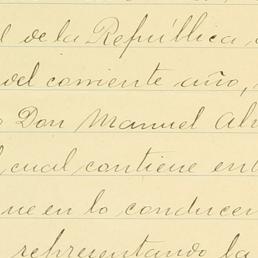 l de la República
del corriente año,
Don Manuel Al
cual contiene ent
ue en lo conducen
representando la